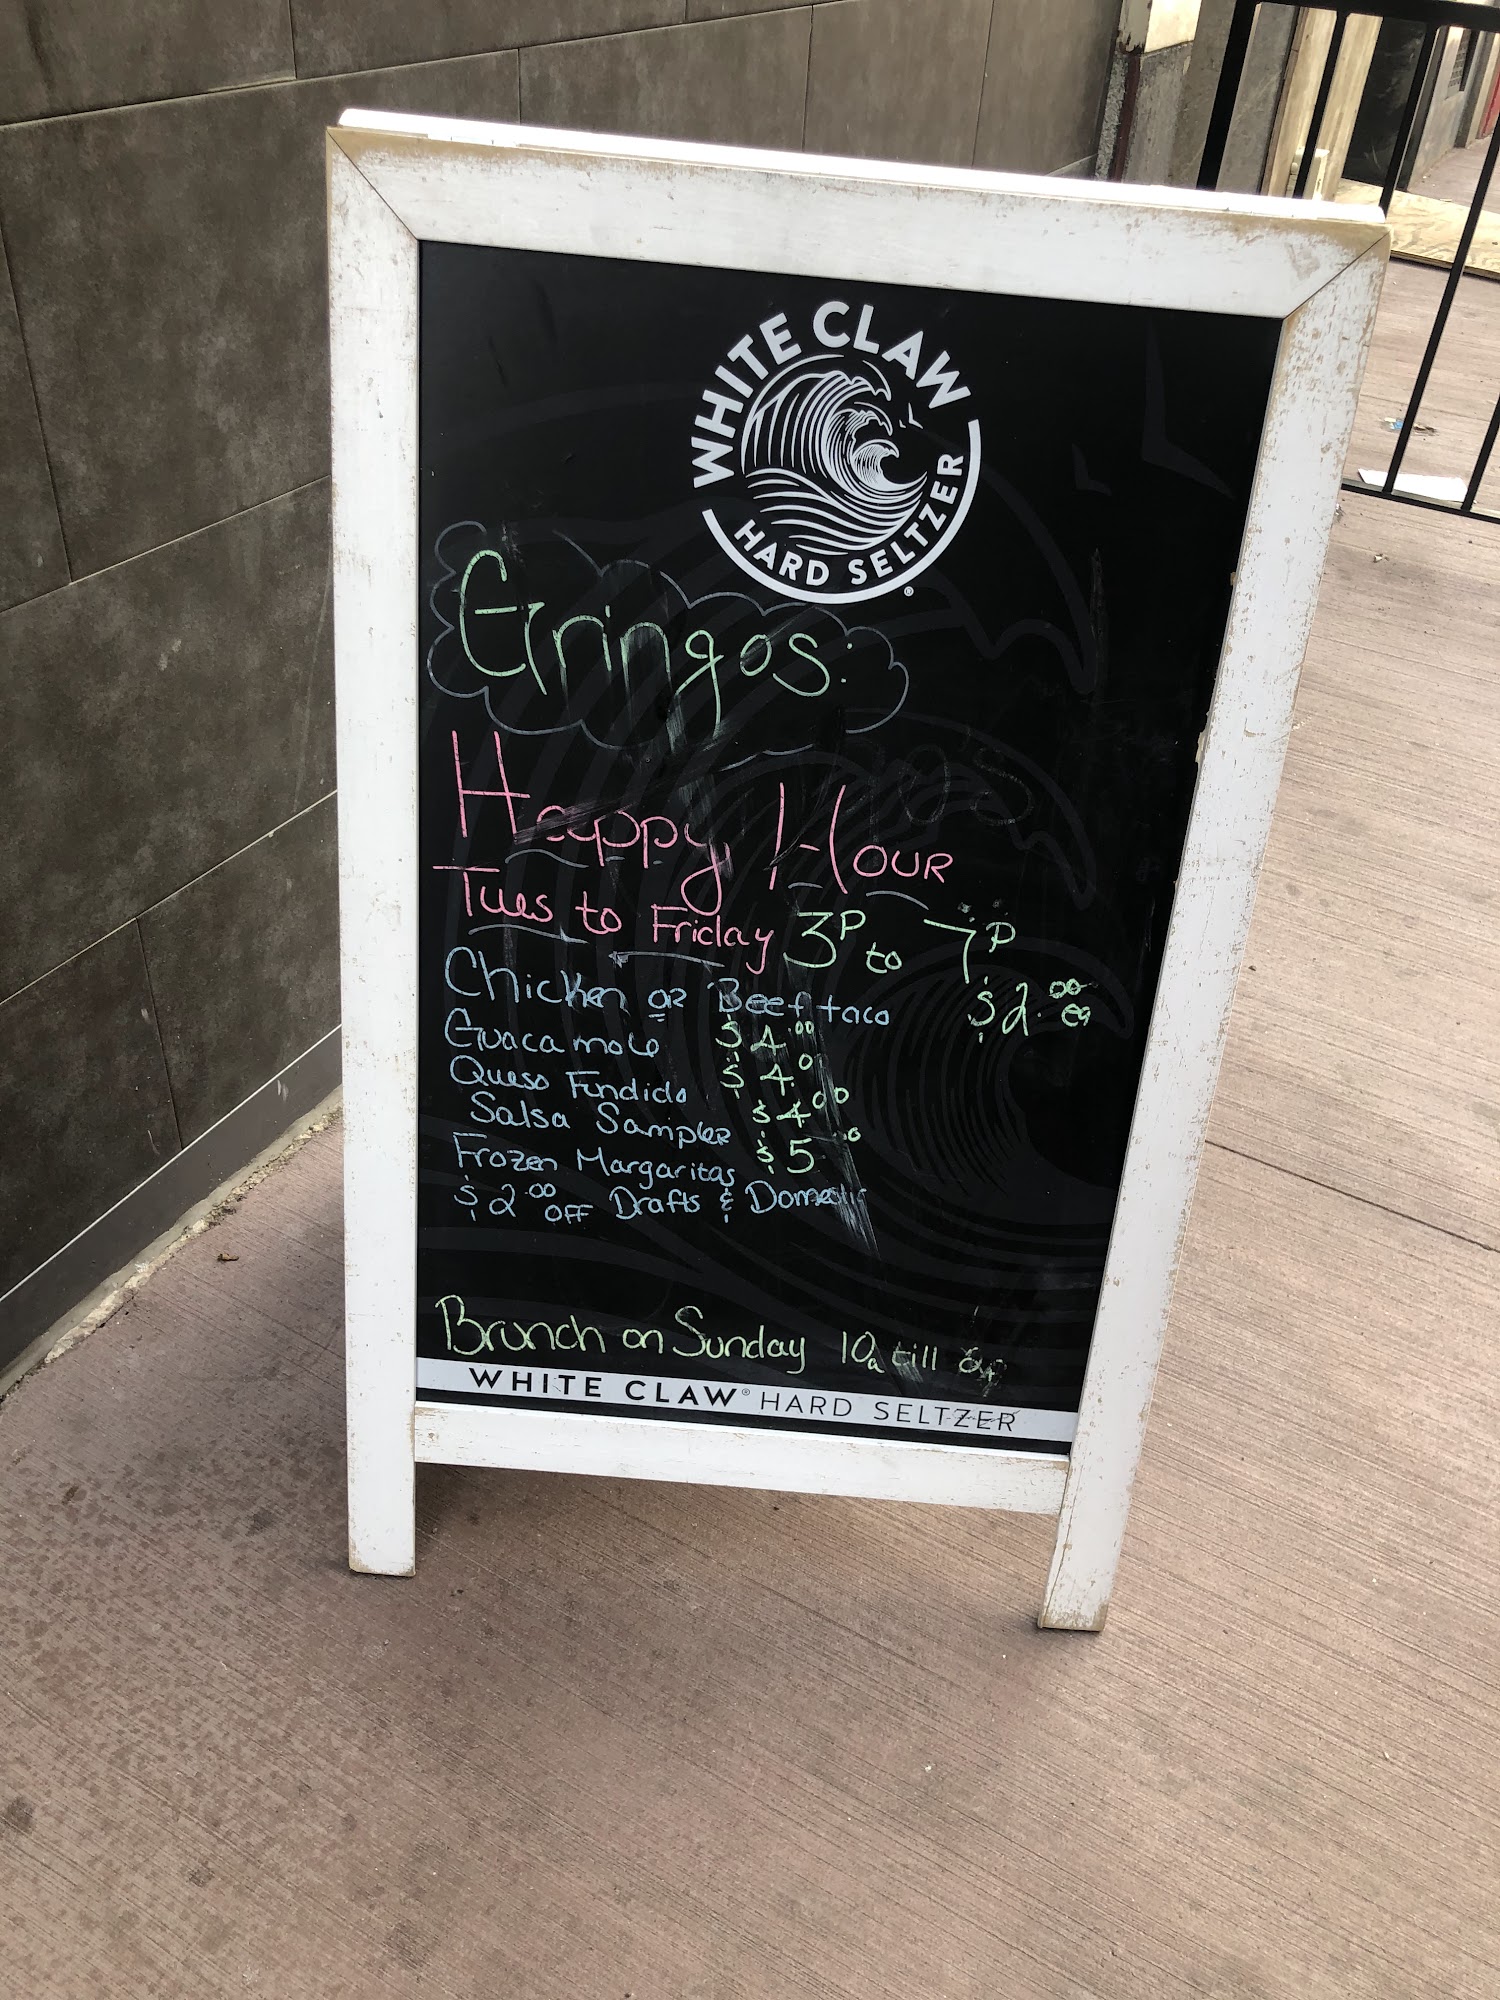 WHITE CLAW
HARD SELTZER
Gringos:
Happy Hour
Tues to Friday 3P to 7P
Chicken or Beef taco $2.00 ea
Guacamole $4.00
Queso Fundido $4.0
Salsa Sampler $4.00
Frozen Margaritas $5.00
$2.00 OFF Drafts & Domestic
Brunch on Sunday 10a till
WHITE CLAW® HARD SELTZER